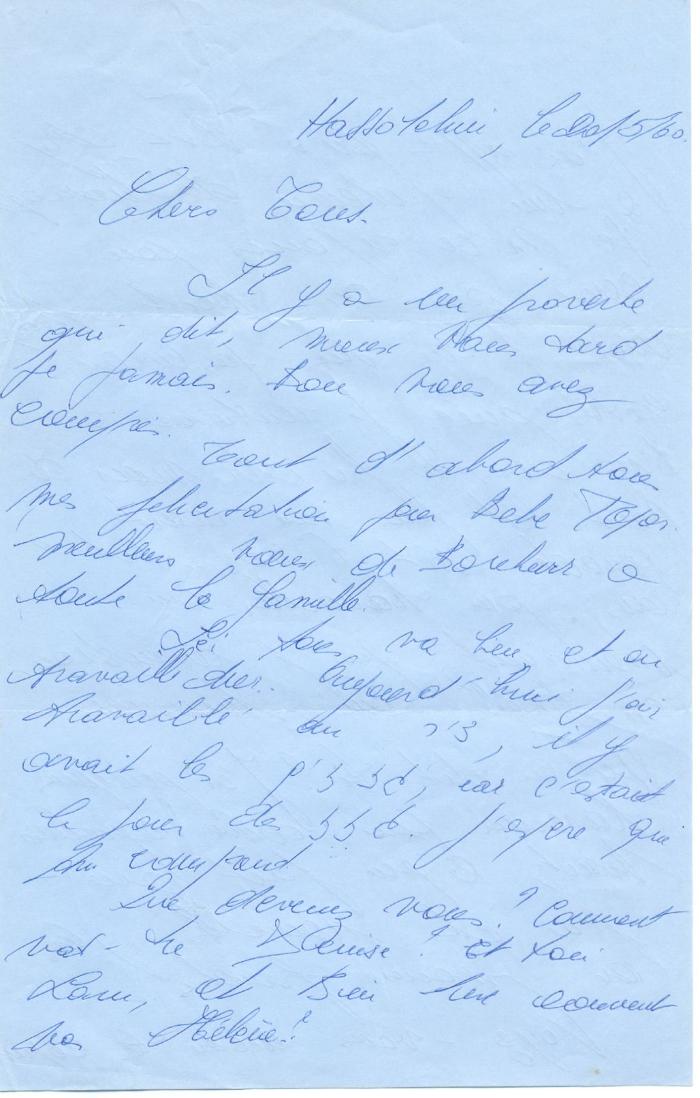 Hassolelim, le 20/5/60.
Chers Tous.
Il y a un proverbe
qui dit, mieux vaux tard
que jamais. Bon vous avez
compris.
Tout d'abord tous
mes félicitation pour Bébé Topor.
meulleurs vœux de Bonheur a
toute la famille.
Ici tous va bien et on
travaille dur. Aujourd'hui j'ai
travaillé au גן, il y
avait les, car c'était
le jour des. J'espère que
tu comprend.
Que devenez vous? Comment
vat-tu Denise? Et toi
, et Bien sur comment
va Hélène?